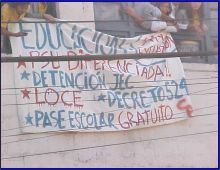 EDUCACION
PSU DIFERENCIADA!!
DETENCIÓN JEC
LOCE DECRETO 524
PASE ESCOLAR GRATUITO